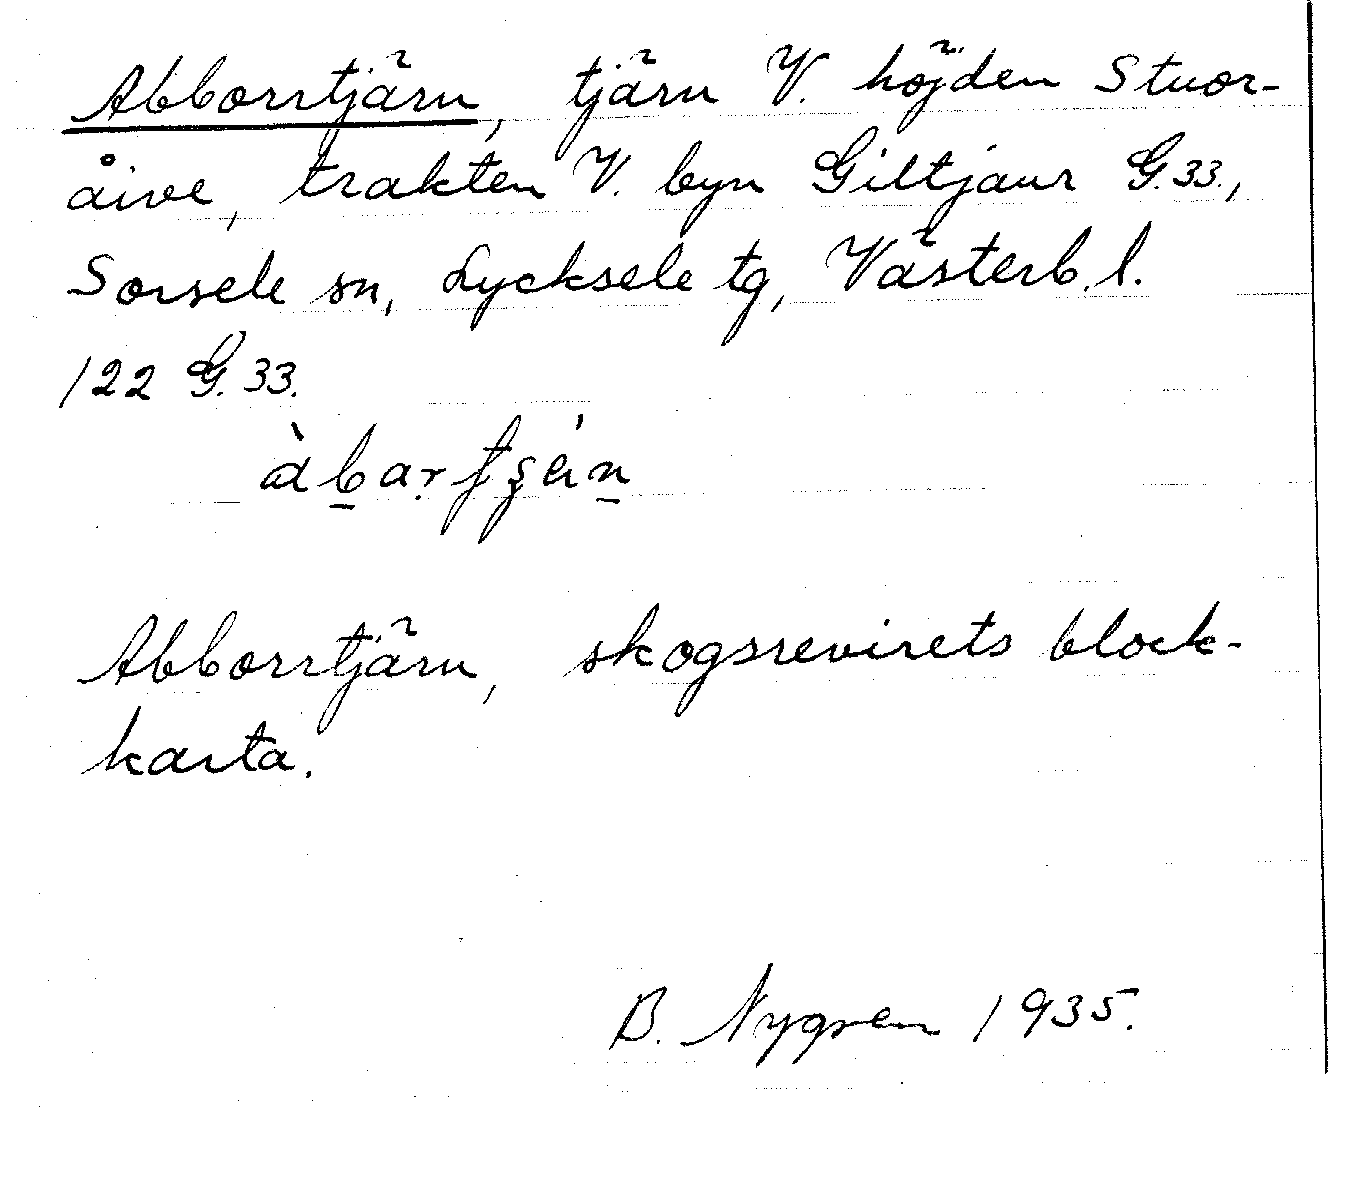 Abborrtjärn, tjärn V. höjden Stuor-
åive, trakten V. byn Giltjaur G.33.,
Sorsele sn, Lycksele tg, Västerb. l.
122 G.33.
Abborrtjärn, skogsrevirets block-
karta.
B. Nygren 1935.